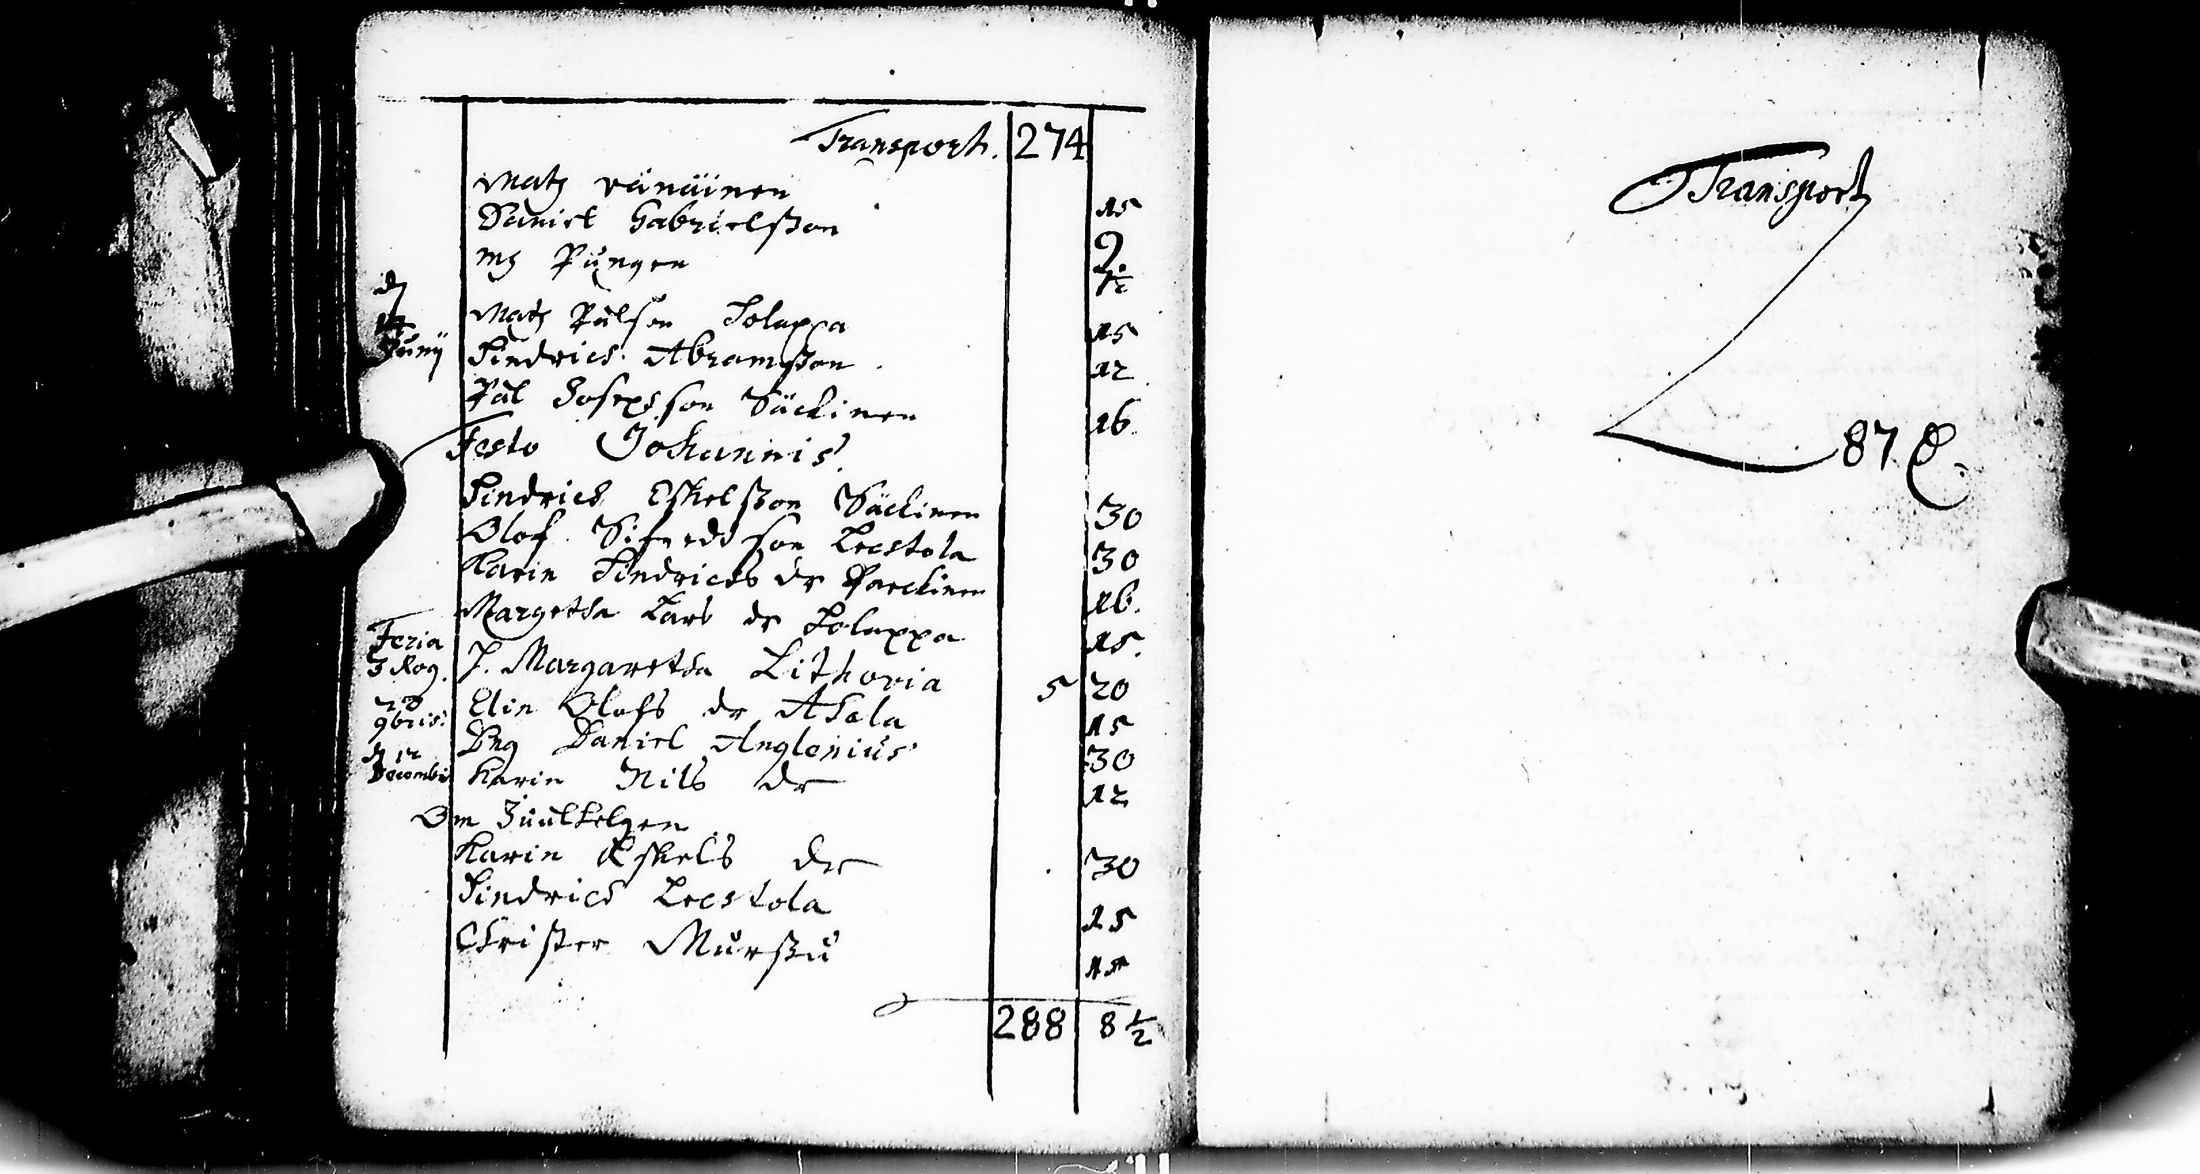 Transport. 274
Matz Vänäinen 15
Daniel Gabrielsson 9.
Mz Pungen 1/2
Matz Pålson Tolappa 15
Juny Hindrich Abramsson 12
Pål Josephson Säckinen 16.
Festo Johannis.
Hindrich Eskelsson Säckinen 30
Olof Sifredsson Leestola 30
Karin Hindrichs dr Parckinen 16.
Margetha Lars dr Tolappa 15.
Feria
3 Rog. H. Margaretha Lithovia 5 20
9bris. Elin Olofs dr Ahola 15
Dng Daniel Anglenius 30
d 12
Decembr Karin Nils dr 12
Om Juulhelgen
Karin Eskels dr 30
Hindrich Leestola 15
Christer Mursu 15
288 8 1/2
Transport
87